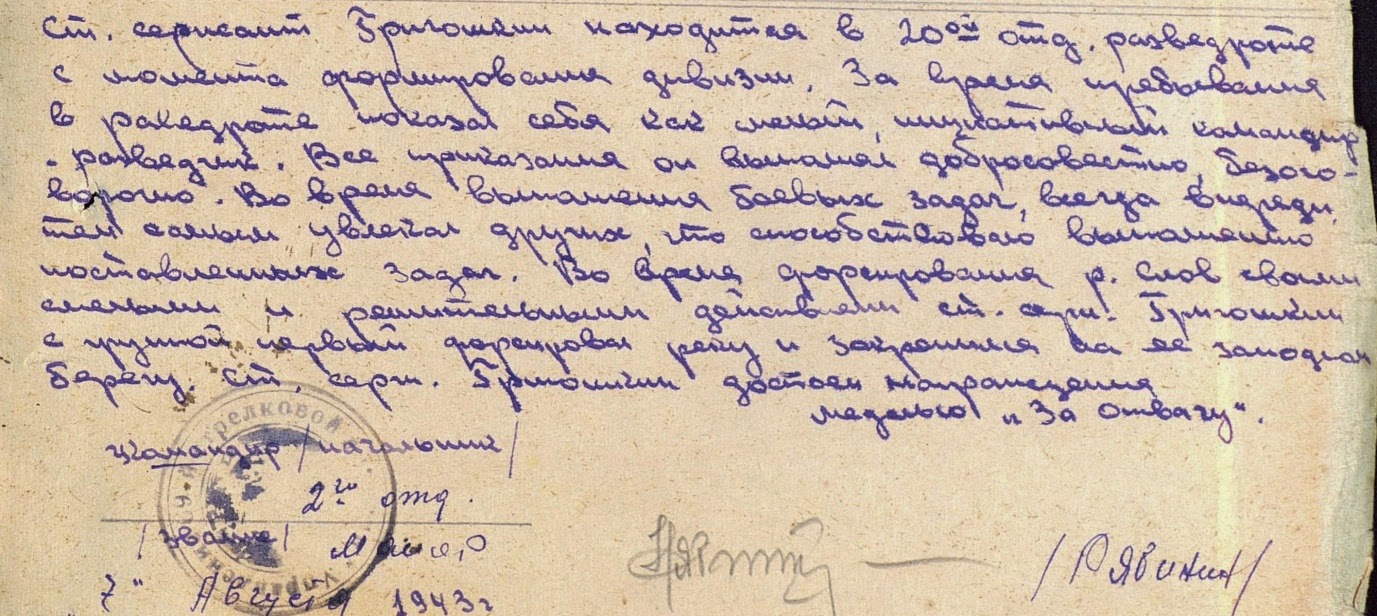 Ст. сержант Григошкин находится в 20ой отд. разведроте
с момента формирования дивизии. За время пребывания
в разведроте показал себя как смелый, инициативный командир
- разведчик. Все приказания он выполнял добросовестно, безого-
ворочно. Во время выполнения боевых задач, всегда впереди,
тем самым увлекал других, что способствовало выполнению
поставленных задач. Во время форсирования р. своими
смелыми и решительными действиями ст. серж. Григошкин
с группой первый форсировал реку и закрепился на ее западном
берегу. Ст. серж. Григошкин достоин награждения
медалью „За Отвагу“.
Командир /начальник/
2го отд.
/звание/ Майор
7" Августа 1943г
/Рябинин/
Управление стрелковой